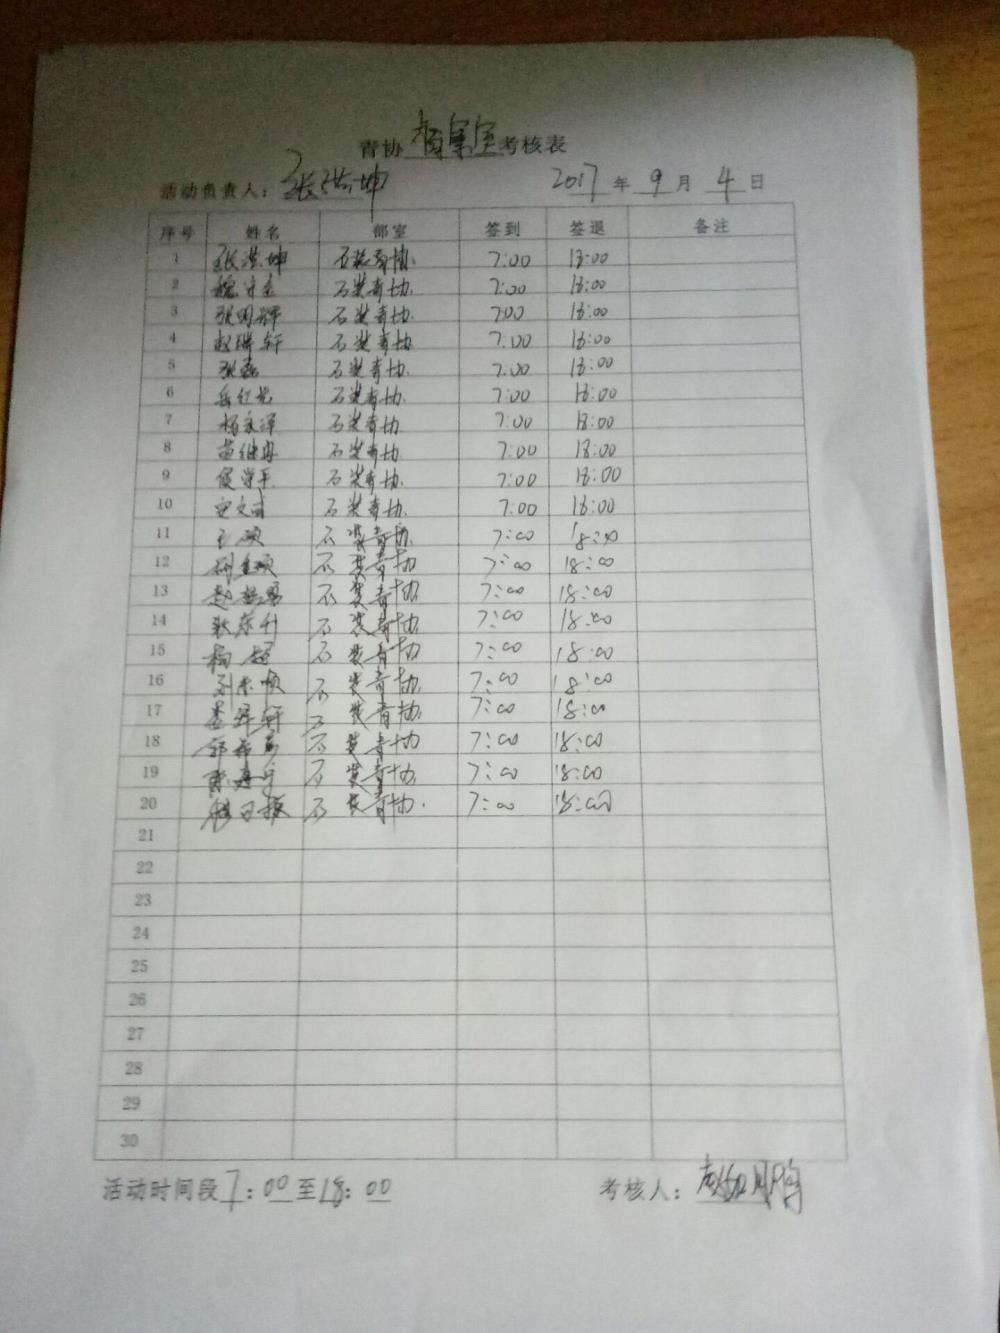 青协 考核表
活动负责人：张洪坤 2017 年 9 月 4 日
序号 姓名 部室 签到 签退 备注
1 张洪坤 石装青协 7:00 18:00
2 石装青协. 7:00 18:00
3 石装青协. 7:00 18:00
4 赵瑞轩 石装青协. 7:00 18:00
5 张磊 石装青协. 7:00 18:00
6 石装青协. 7:00 18:00
7 杨永泽 石装青协. 7:00 18:00
8 苗继冉 石装青协. 7:00 18:00
9 石装青协. 7:00 18:00
10 石装青协. 7:00 18:00
11 王硕 石装青协 7:00 18:00
12 石装青协. 7:00 18:00
13 石装青协 7:00 18:00
14 耿东升 石装青协. 7:00 18:00
15 杨超 石装青协. 7:00 18:00
16 石装青协. 7:00 18:00
17 石装青协. 7:00 18:00
18 石装青协 7:00 18:00
19 石装青协. 7:00 18:00
20 石装青协. 7:00 18:00
21
22
23
24
25
26
27
28
29
30
活动时间段 7:00 至 18:00 考核人：